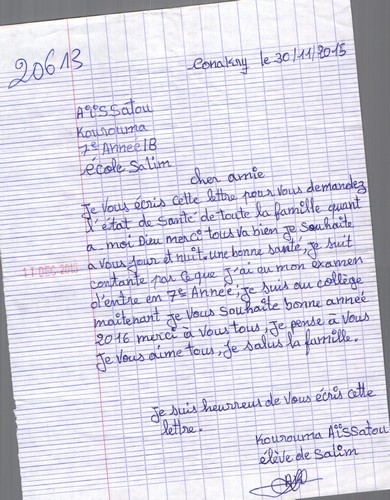 20613
Conakry le 30/11/2015
Aïssatou
Kourouma
7e Année 1B
école Salim
cher amie
Je vous écris cette lettre pour vous demandez
l'état de santé de toute la famille quant
a moi Dieu merci tous va bien je souhaite
a vous jour et nuit une bonne santé, je suit
contante par ce que j'ai eu mon examen
d'entre en 7e Année, je suis au collège
maitenant je vous souhaite bonne année
2016 merci à vous tous, je pense à vous
je vous aime tous, je salus la famille.
je suis heurreus de vous écris cette
lettre.
Kourouma Aïssatou
élève de Salim